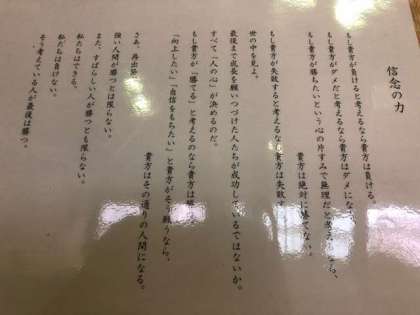 信念の力
もし貴方が負けると考えるなら貴方は負ける。
もし貴方がダメだと考えるなら貴方はダメにな
もし貴方が勝ちたいという心の片すみで無理だと考え なら、
貴方は絶対に勝てない。
もし貴方が失敗すると考えるなら貴方は失敗す
世の中を見よ。
最後まで成長を願いつづけた人たちが成功しているではないか。
すべて「人の心」が決めるのだ。
もし貴方が「勝てる」と考えるのなら貴方は
「向上したい」「自信をもちたい」と貴方がそう願うなら、
貴方はその通りの人間になる。
さあ、再出発
強い人間が勝つとは限らない。
また、すばらしい人が勝つとも限らない。
私たちはできる。
私たちは負けない。
そう考えている人が最後は勝つ。